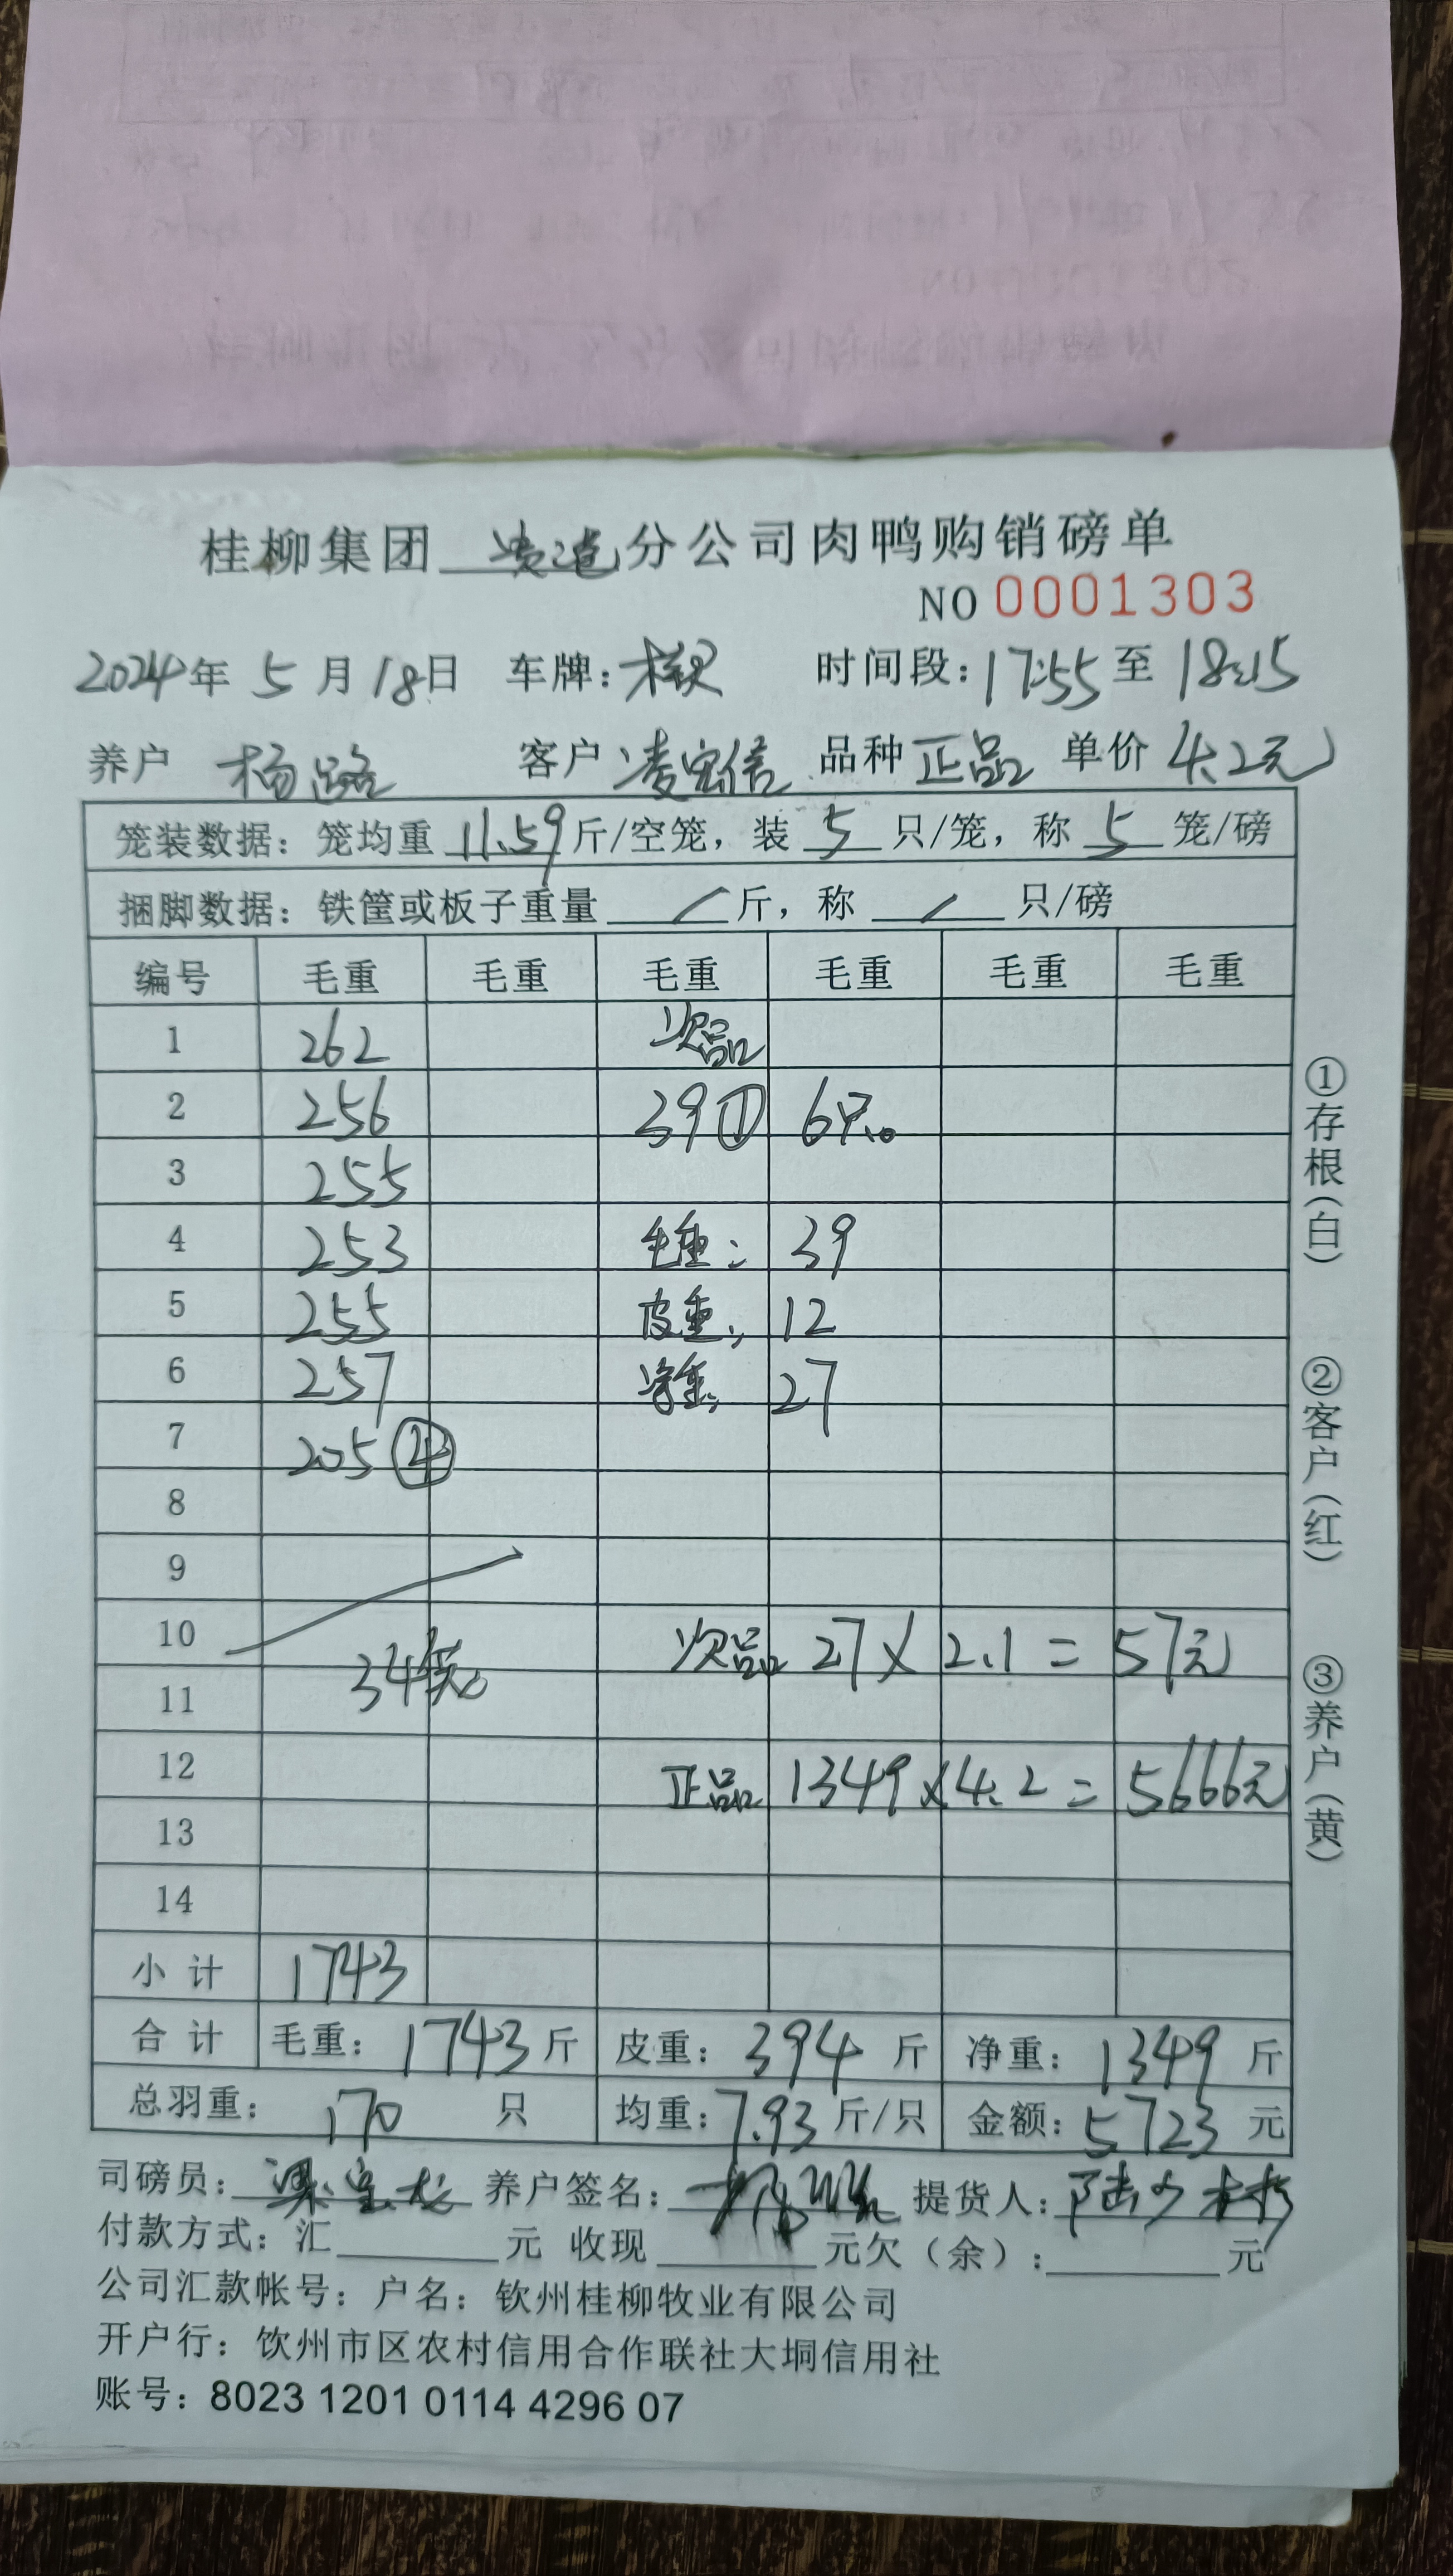 桂柳集团 分公司肉鸭购销磅单
NO 0001303
2024年 5月 18日 车牌: 时间段: 17:55 至 18:15
养户 杨路 客户 凌宏信 品种 正品 单价 4.2元
笼装数据: 笼均重 11.59 斤/空笼, 装 5 只/笼, 称 5 笼/磅
捆脚数据: 铁筐或板子重量 / 斤, 称 / 只/磅
编号 毛重 毛重 毛重 毛重 毛重 毛重
1 262 次品
2 256 39① 6只。
3 255
4 253 毛重: 39
5 255 皮重: 12
6 257 净重: 27
7 205④
8
9
10 次品 27×2.1=57元
34笼
11
12 正品 1349×4.2=5666元
13
14
小计 1743
合计 毛重: 1743 斤 皮重: 394 斤 净重: 1349 斤
总羽重: 170 只 均重: 7.93 斤/只 金额: 5723 元
司磅员: 养户签名: 提货人: 陆少
付款方式: 汇 元 收现 元欠(余): 元
公司汇款帐号: 户名: 钦州桂柳牧业有限公司
开户行: 饮州市区农村信用合作联社大垌信用社
账号: 8023 1201 0114 4296 07
①存根(白)
②客户(红)
③养户(黄)